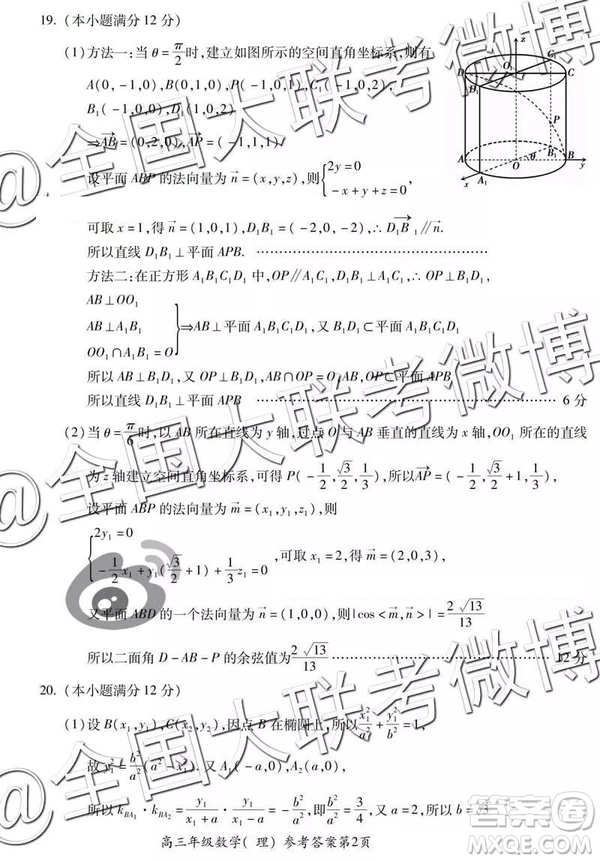 19. (本小题满分12分)
(1)方法一:当θ=π/2时,建立如图所示的空间直角坐标系,则有
A(0,-1,0),B(0,1,0),P(-1,0,1),C₁(-1,0,2),
B₁(-1,0,0),D₁(1,0,2)
⇒AB→=(0,2,0),AP→=(-1,1,1)
设平面ABP的法向量为n→=(x,y,z),则{2y=0
-x+y+z=0
可取x=1,得n→=(1,0,1),D₁B₁→=(-2,0,-2),∴D₁B₁→∥n→.
所以直线D₁B₁⊥平面APB. ……
方法二:在正方形A₁B₁C₁D₁中,OP∥A₁C₁,D₁B₁⊥A₁C₁,∴OP⊥B₁D₁,
AB⊥OO₁
AB⊥A₁B₁ }⇒AB⊥平面A₁B₁C₁D₁,又B₁D₁⊂平面A₁B₁C₁D₁,
OO₁∩A₁B₁=O
所以AB⊥B₁D₁,又OP⊥B₁D₁,AB∩OP=O
所以直线D₁B₁⊥平面APB. …… 6分
(2)当θ=π/6时,以AB所在直线为y轴,过点O与AB垂直的直线为x轴,OO₁所在的直线
为z轴建立空间直角坐标系,可得P(-1/2,√3/2,1),所以AP→=(-1/2,√3/2+1,1),
设平面ABP的法向量为m→=(x₁,y₁,z₁),
{2y₁=0
-1/2x₁+y₁(√3/2+1)+z₁=0 ,可取x₁=2,得m→=(2,0,1),
又平面ABD的一个法向量为n→=(1,0,0),则|cos<m→,n→>|=2√13/13
所以二面角D-AB-P的余弦值为2√13/13 …… 12分
20. (本小题满分12分)
(1)设B(x₁,y₁),C(x₂,y₂),因点B在椭圆上,所以x₁²/a²+y₁²/b²=1,
故y₁²=b²/a²(a²-x₁²).又A₁(-a,0),A₂(a,0),
所以k_BA₁·k_BA₂=y₁/(x₁+a)·y₁/(x₁-a)=-b²/a²,即b²/a²=3/4,又a=2,所以b=√3
高三年级数学(理)参考答案第2页
@全国大联考微博
答案圈
MXQE.COM